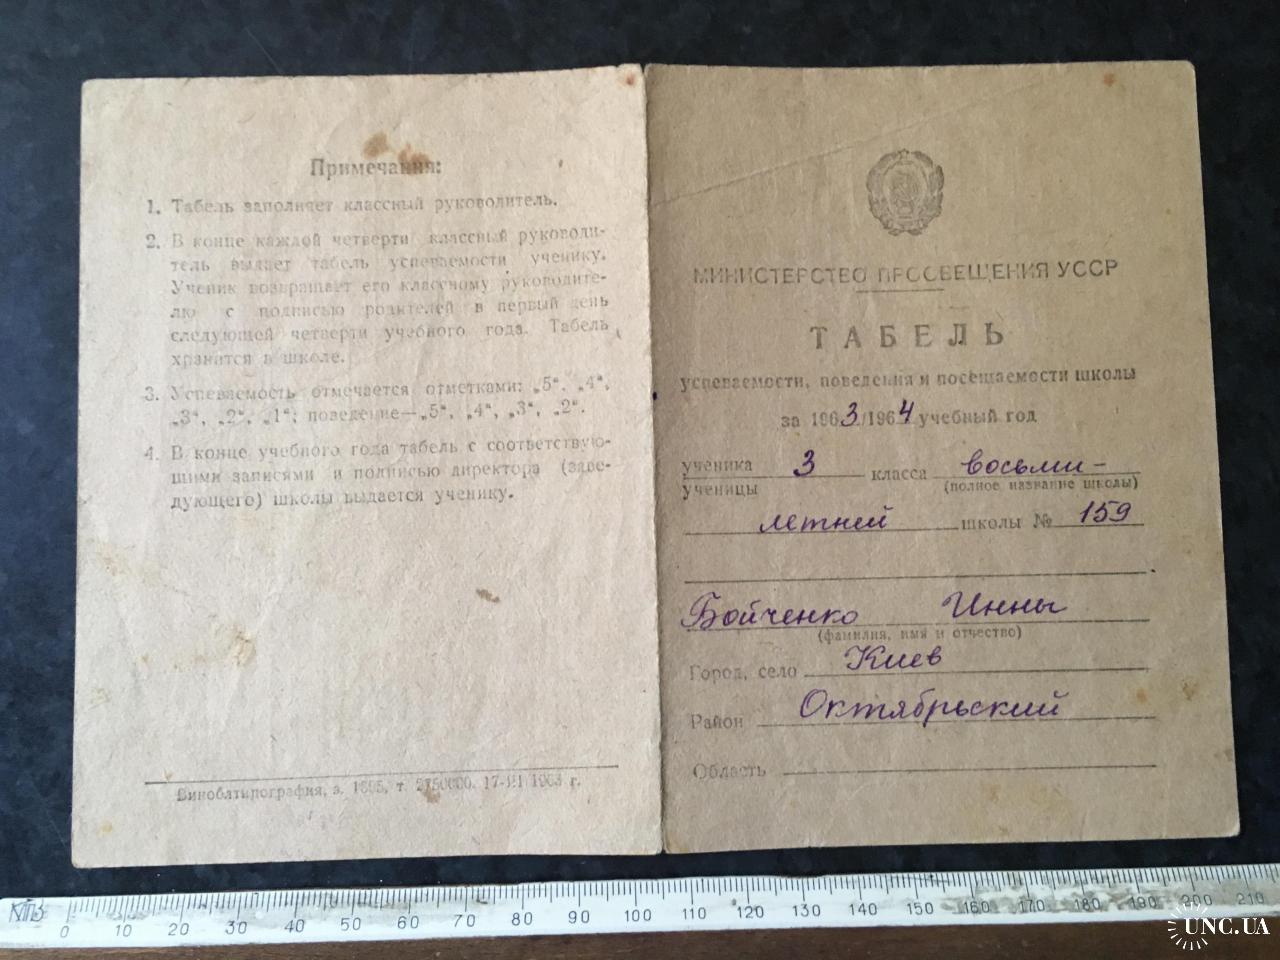 Примечания:
1. Табель заполняет классный руководитель.
2. В конце каждой четверти классный руководи-
тель выдает табель успеваемости ученику.
Ученик возвращает его классному руководите-
лю с подписью родителей в первый день
следующей четверти учебного года. Табель
хранится в школе.
3. Успеваемость отмечается отметками: „5“, „4“,
„3“, „2“, „1“; поведение—„5“, „4“, „3“, „2“.
4. В конце учебного года табель с соответствую-
щими записями и подписью директора (заве-
дующего) школы выдается ученику.
Виноблтипография, з. 1695, т. 2750000. 17-III 1963 г.
МИНИСТЕРСТВО ПРОСВЕЩЕНИЯ УССР
ТАБЕЛЬ
успеваемости, поведения и посещаемости школы
за 1963/1964 учебный год
ученика 3 класса восьми-
ученицы (полное название школы)
летней школы № 159
Бойченко Инны
(фамилия, имя и отчество)
Город, село Киев
Район Октябрьский
Область
КТПЗ
0 10 20 30 40 50 60 70 80 90 100 110 120 130 140 150 160 170 180 190 200 210
UNC.UA